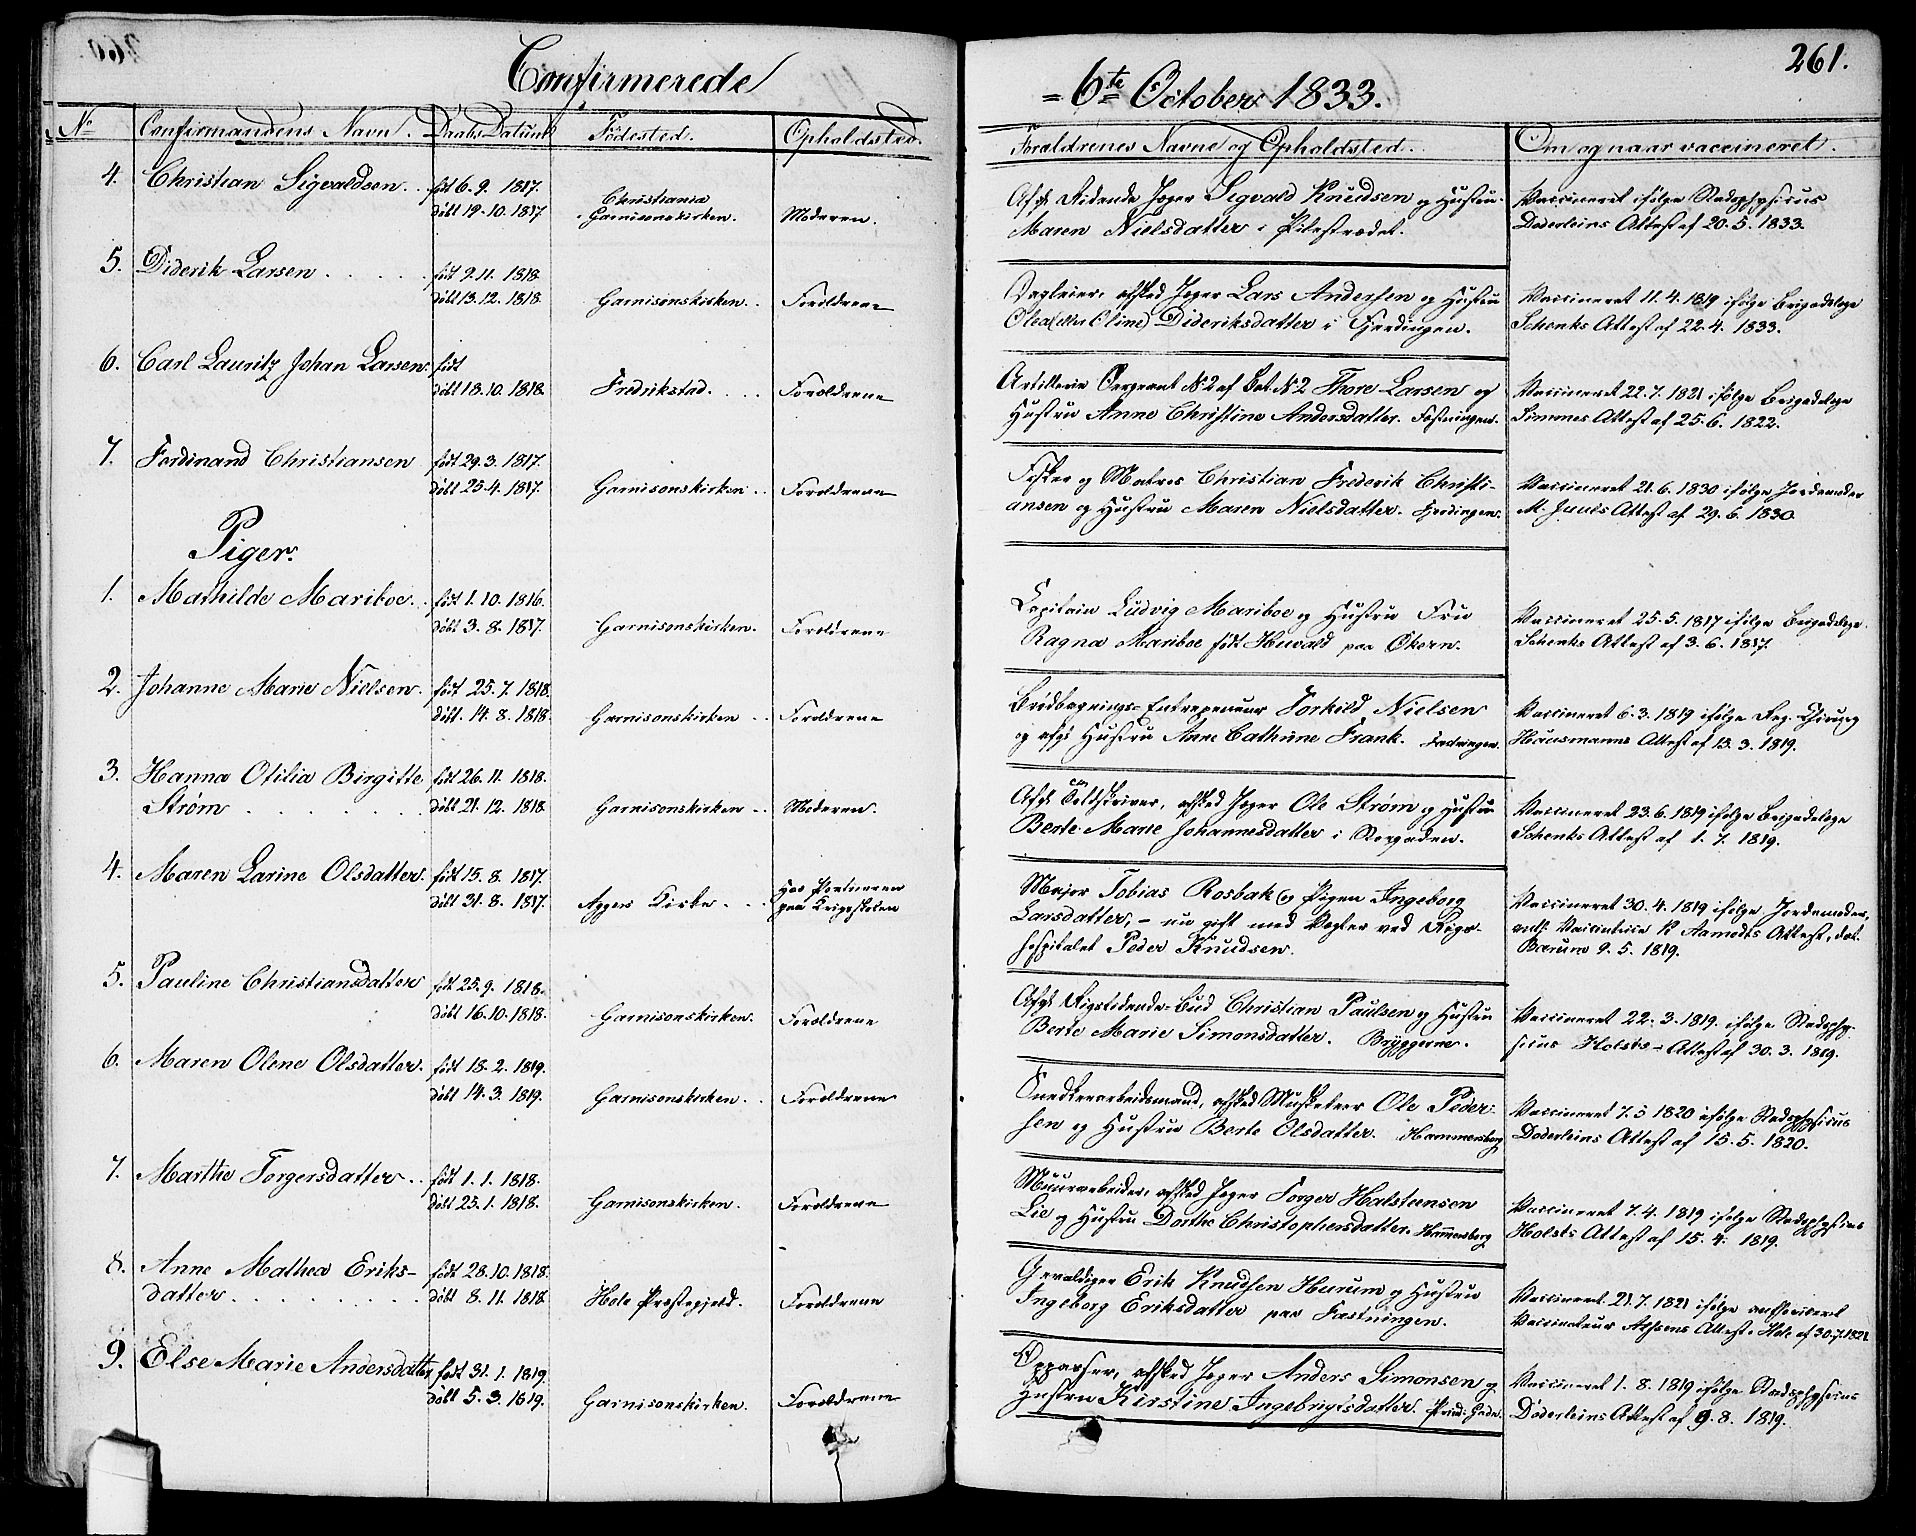 Confirmerede
No
Confirmandens Navn.
Daabs Datum
Födested.
Opholdsted.
4. Christian Sigvaldsen.
født 6. 9. 1817.
døbt 19. 10. 1817
Christiania
Garnisonskirken.
Moderen.
5. Diderik Larsen
født 9. 11. 1818.
døbt 13. 12. 1818.
Garnisonskirken.
Forældrene
6. Carl Lauritz Johan Larsen.
født
døbt 18. 10. 1818.
Fredrikstad.
Forældrene
7. Ferdinand Christiansen
født 29. 3. 1817.
døbt 25. 4. 1817.
Garnisonskirken
Forældrene
Piger.
1. Mathilde Mariboe.
født 1. 10. 1816.
døbt 3. 8. 1817.
Garnisonskirken.
Forældrene
2. Johanne Marie Nielsen.
født 25. 7. 1818.
døbt. 14. 8. 1818.
Garnisonskirken
Forældrene
3. Hanna Otilia Birgitte
Strøm
født 26. 11. 1818.
døbt 21. 12. 1818.
Garnisonskirken
Moderen.
4. Maren Larine Olsdatter.
født 15. 8. 1817.
døbt 31. 8. 1817.
Aggers Kirke.
Hos Portneren
paa Krigsskolen
5. Pauline Christiansdatter
født 25. 9. 1818.
døbt 16. 10. 1818.
Garnisonskirken.
Forældrene
6. Maren Olene Olsdatter.
født 18. 2. 1819.
døbt 14. 3. 1819.
Garnisonskirken.
Forældrene
7. Marthe Torgersdatter
født 1. 1. 1818.
døbt 25. 1. 1818.
Garnisonskirken.
Forældrene
8. Anne Mathea Eriks-
datter
født 28. 10. 1818.
døbt 8. 11. 1818
Hole Præstegjeld.
Forældrene
9. Else Marie Andersdatter
født 31. 1. 1819.
døbt 5. 3. 1819.
Garnisonskirken.
Forældrene
261.
= 6te October 1833.
Forældrenes Navne og Opholdsted.
Om og naar vaccineret.
Afgk. Ridende Jæger Sigvald Knudsen og Hustru
Maren Nielsdatter i Pilestrædet.
Vaccineret ifølge Stadsphysicus
Døderleins Attest af 20. 5. 1833.
Dagleier, afsked Jæger Lars Andersen og Hustru
Olea (eller Oline) Dideriksdatter i Fjerdingen.
Vaccineret 11. 4. 1819 ifølge Brigadelæge
Schenks Attest af 22. 4. 1833.
Artillerie Sergeant No 2 af Bat. No 2 Thore Larsen og
Hustru Anne Christine Andersdatter. Fæstningen.
Vaccineret 22. 7. 1821 ifølge Brigadelæge
Simmes Attest af 25. 6. 1822.
Fisker og Matros Christian Frederik Christi-
ansen og Hustru Maren Nielsdatter. Fjerdingen.
Vaccineret 21. 6. 1830 ifølge Jordemoder
M. Juuls Attest af 29. 6. 1830.
Capitain Ludvig Mariboe og Hustru Fru
Ragna Mariboe født Huvald paa Økern.
Vaccineret 25. 5. 1817 ifølge Brigadelæge
Schenks Attest af 3. 6. 1817.
Brødbagnings-Entrepeneur Torkild Nielsen
og afgk Hustru Anne Cathrine Frank. Fæstningen.
Vaccineret 6. 3. 1819 ifølge Reg. Chirurg
Hausmanns Attest af 13. 3. 1819.
Afgk. Toldskriver, afsked Jæger Ole Strøm og Hustru
Berte Marie Johannesdatter i
Vaccineret 23. 6. 1819 ifølge Brigadelæge
Schenks Attest af 1. 7. 1819.
Major Tobias Rosbak og Pigen Ingeborg
Larsdatter, - nu gift med Vægter ved Rigs-
hospitalet Peder Knudsen.
Vaccineret 30. 4. 1819 ifølge Jordemoder,
auth. Vaccintrice K Aamodts Attest, dat.
Bærum 9. 5. 1819.
Afgk. Rigstidende-Bud Christian Paulsen og Hustru
Berte Marie Simonsdatter. Bryggerne.
Vaccineret 22. 3. 1819. ifølge Stadsphy-
sicus Holsts - Attest af 30. 3. 1819.
Snedkerarbeidsmand, afsked Musketeer Ole Peder-
sen og Hustru Berte Olsdatter. Hammersborg
Vaccineret 7. 5 1820 ifølge Stadsphysicus
Døderleins Attest af 15. 5. 1820.
Muurarbeider, afsked Jæger Torger Halsteensen
Lie og Hustru Dorthe Christophersdatter. Hammersborg
Vaccineret 7. 4. 1819 ifølge Stadsphysicus
Holsts Attest af 15. 4. 1819.
Gevaldiger Erik Knudsen Hurum og Hustru
Ingeborg Eriksdatter paa Fæstningen.
Vaccineret 21. 7. 1821 ifølge authoriseret
Vaccinateur Attest. Hole af 30. 7. 1821
Oppasser, afsked Jæger Anders Simonsen og
Hustru Kirstine Ingebrigtsdatter. Prinds. Gade.
Vaccineret 1. 8. 1819 ifølge Stadsphysicus
Døderleins Attest af 9. 8. 1819.